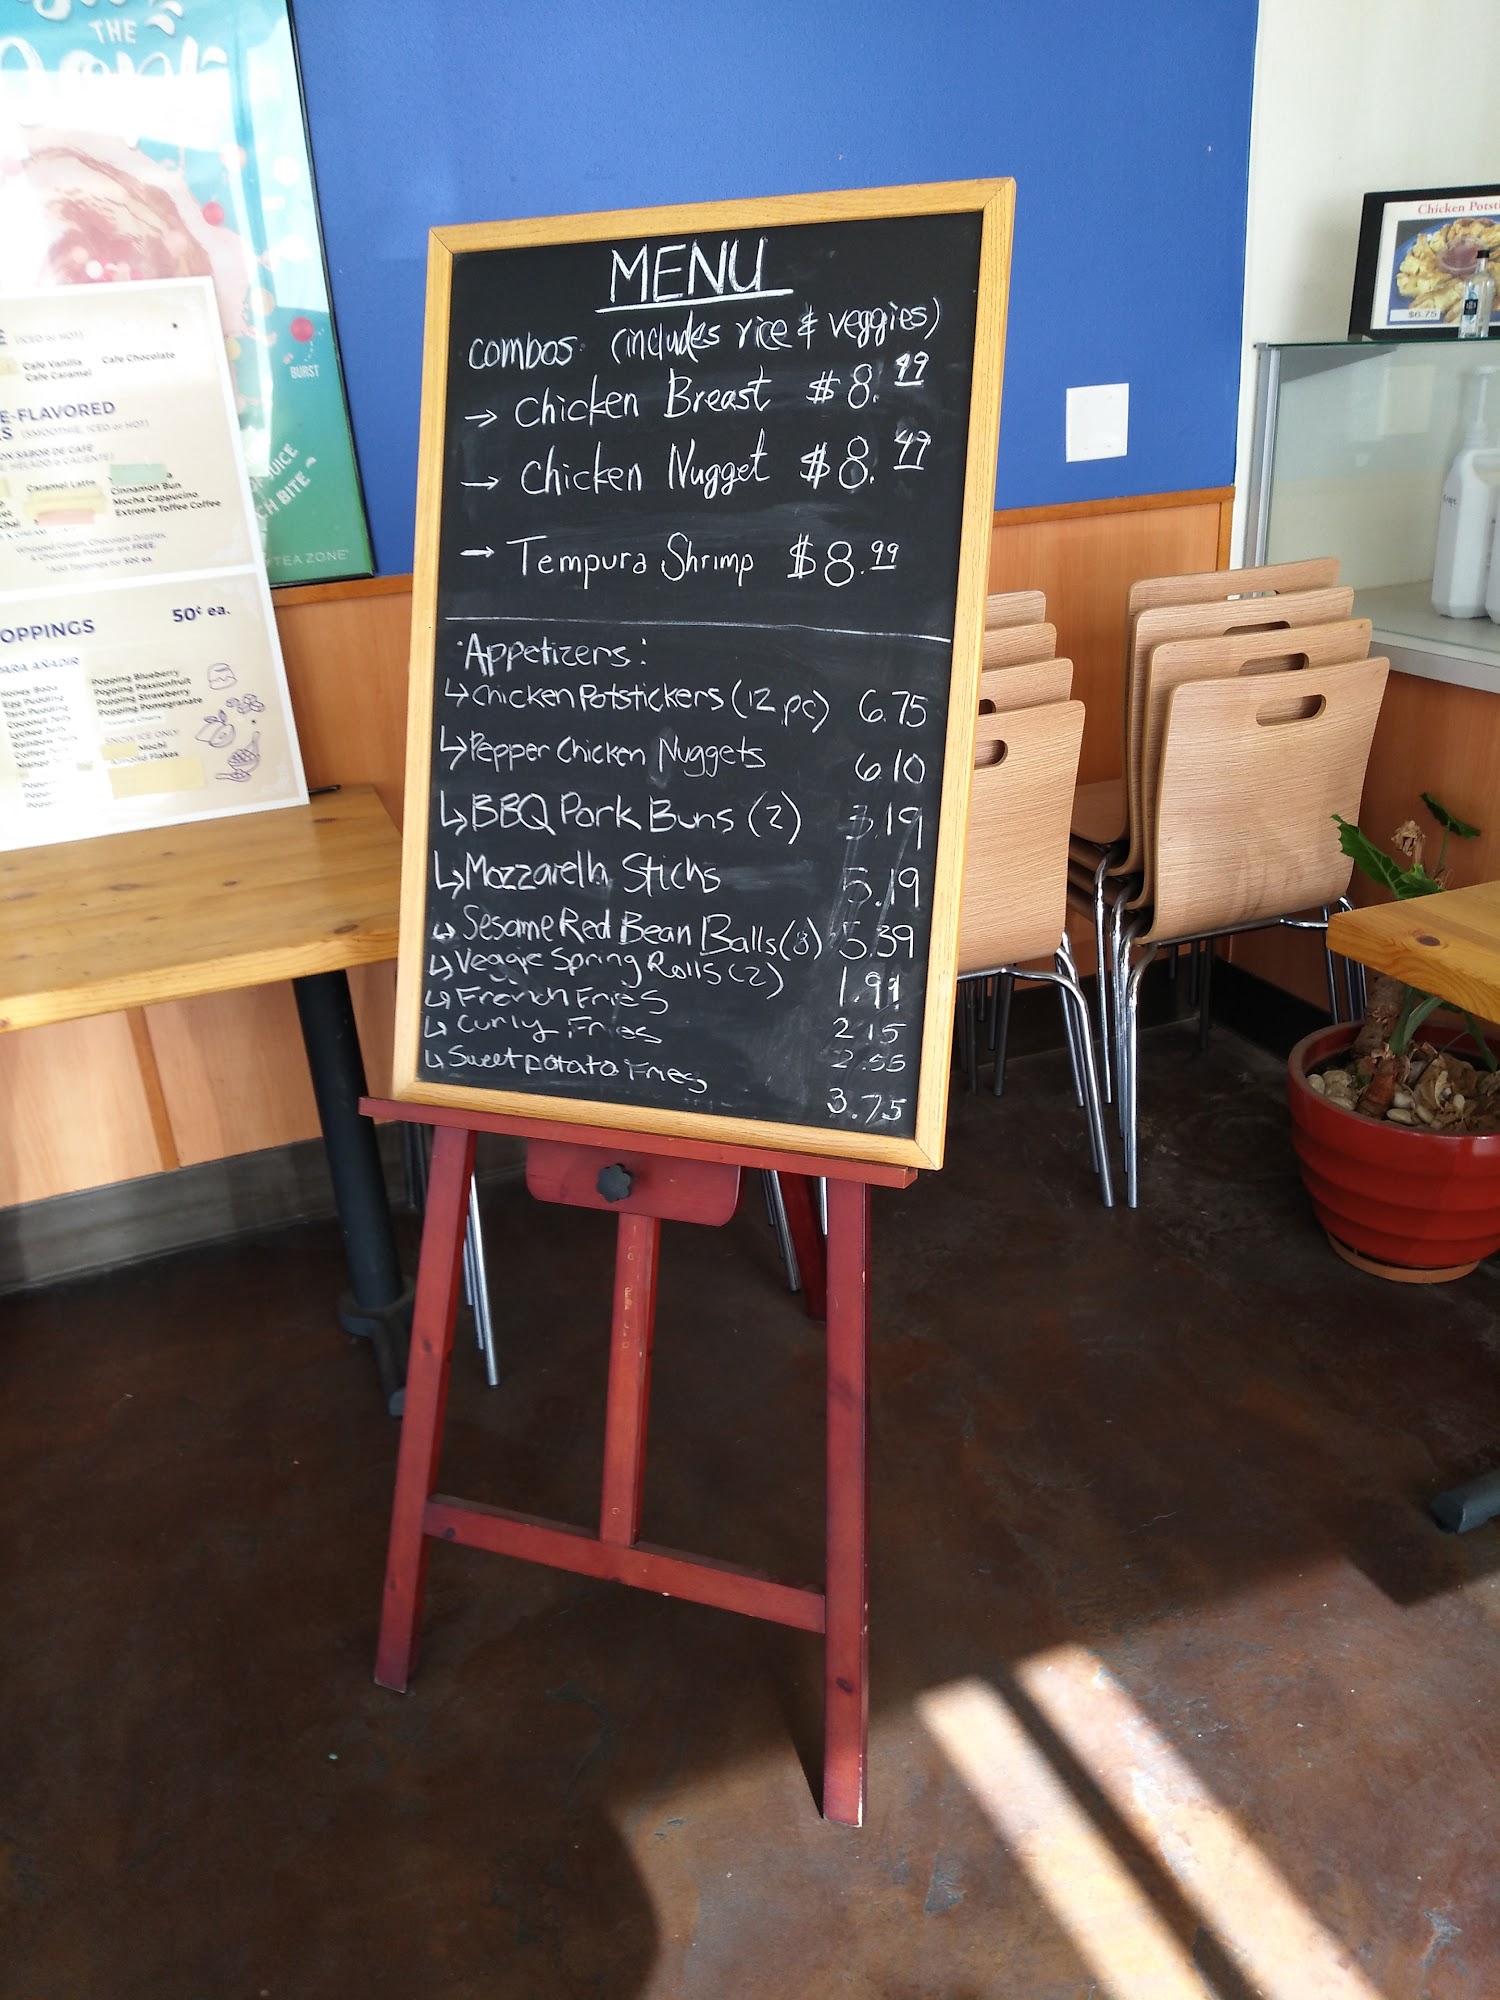 THE
BURST
TEA ZONE
(ICED or HOT)
Cafe Vanilla Cafe Chocolate
Cafe Caramel
E-FLAVORED
(SMOOTHIE, ICED or HOT)
ON SABOR DE CAFÉ
HELADO o CALIENTE)
Caramel Latte
Cinnamon Bun
Mocha Cappucino
Extreme Toffee Coffee
Whipped Cream, Chocolate Drizzles,
& Chocolate Powder are FREE.
OPPINGS 50¢ ea.
PARA AÑADIR
Honey Boba
Egg Pudding
Taro Pudding
Coconut Jelly
Lychee Jelly
Rainbow Jelly
Coffee Jelly
Popping Blueberry
Popping Passionfruit
Popping Strawberry
Popping Pomegranate
SNOW ICE ONLY
Mochi
Almond Flakes
MENU
combos (includes rice & veggies)
→ Chicken Breast $8.99
→ Chicken Nugget $8.49
→ Tempura Shrimp $8.99
Appetizers:
↳ Chicken Potstickers (12 pc) 6.75
↳ Pepper Chicken Nuggets 6.10
↳ BBQ Pork Buns (2) 3.19
↳ Mozzarella Sticks 5.19
↳ Sesame Red Bean Balls (8) 5.39
↳ Veggie Spring Rolls (2) 1.91
↳ French Fries 2.15
↳ Curly Fries 2.55
↳ Sweet potato Fries 3.75
Chicken Potsti
$6.75